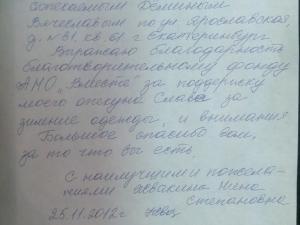 опекаемым Деминым
Вячеславым по ул. Ярославская,
д. № 31, кв 61 г Екатеринбург.
Выражаю благодарность
благотворительному фонду
АНО „Вместе" за поддержку
моего опекуна Слава за
зимние одежды, и внимания
Большое спасибо вам,
за то что вы есть.
С наилучшими пожела-
ниями Аввакина Нина
Степановна
25.11.2012г